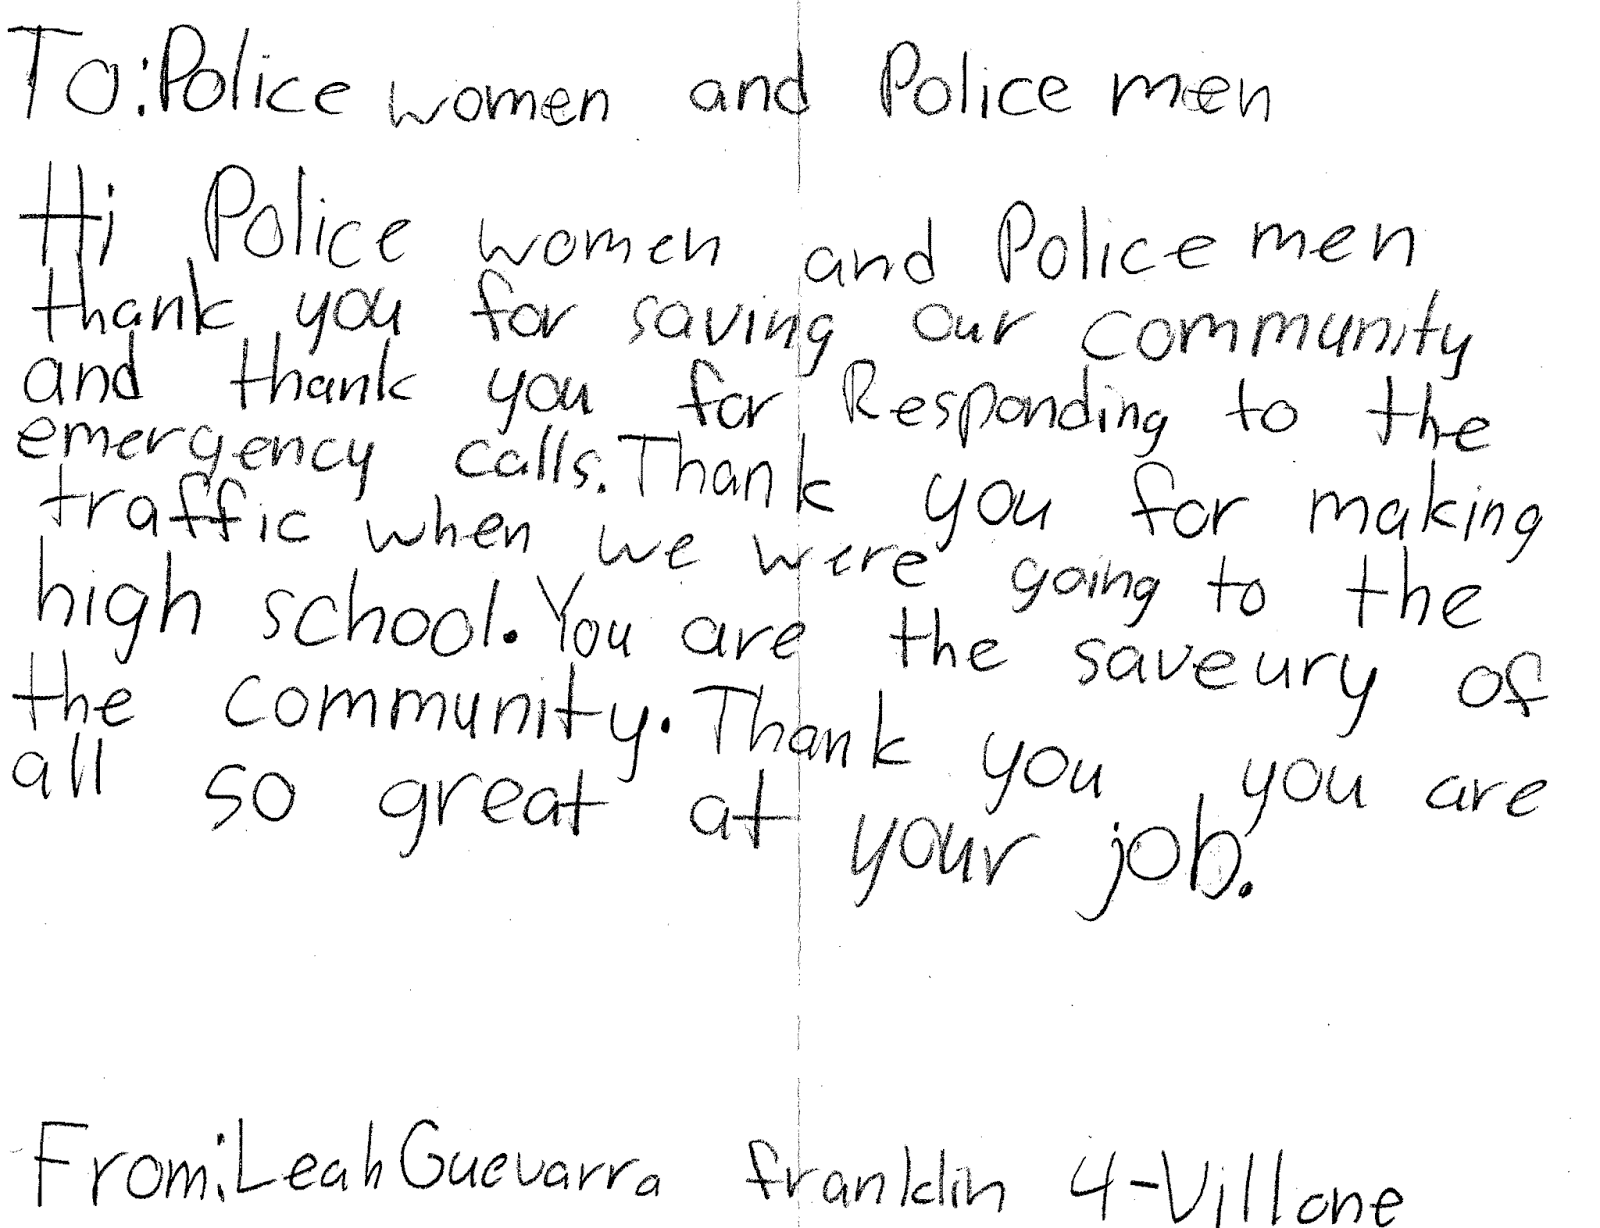 To: Police women and Police men
Hi Police women and Police men
thank you for saving our community
and thank you for Responding to the
emergency calls. Thank you for making
traffic when we were going to the
high school. You are the saveury of
the community. Thank you you are
all so great at your job.
From: Leah Guevarra franklin 4-Villone